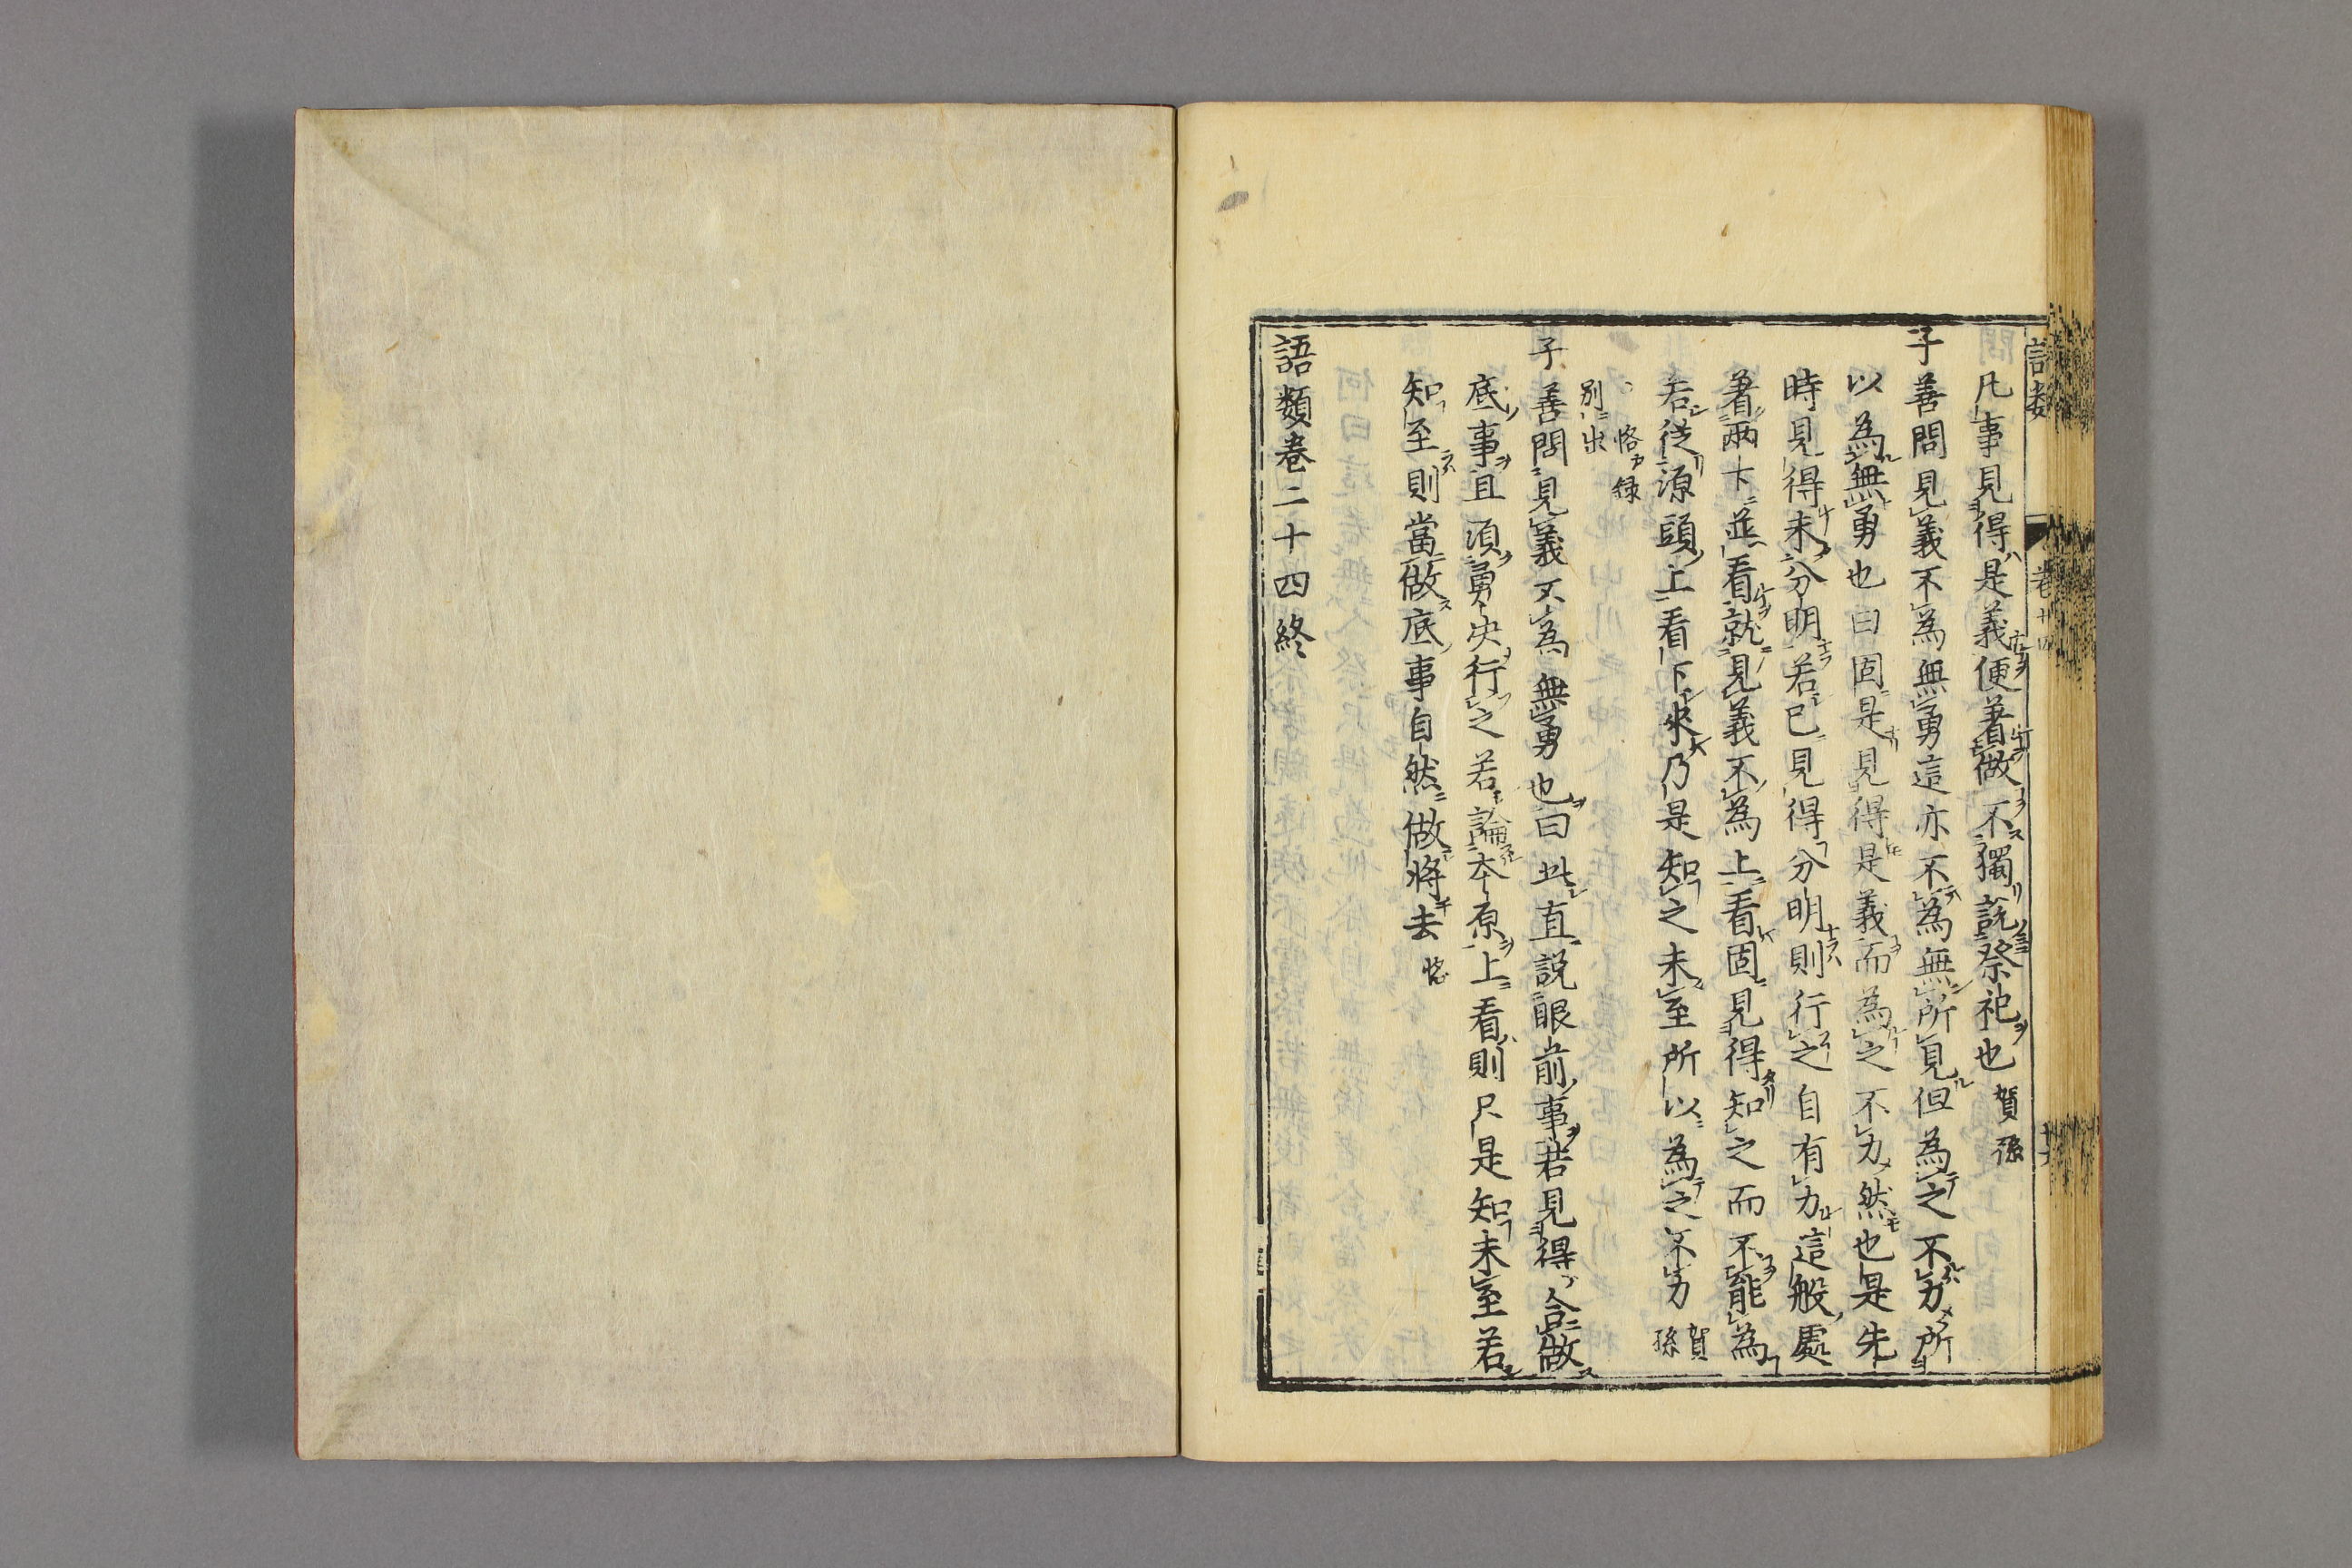 凡事見得是義便著做不獨説祭祀也 賀孫
子善問見義不為無勇這亦不為無所見但為之不力所
以為無勇也曰固是見得是義而為之不力然也是先
時見得未分明若已見得分明則行之自有力這般處
著兩下並看就見義不為上看固見得知之而不能為
若從源頭上看下來乃是知之未至所以為之不力 賀孫
恪録
別出
子善問見義不為無勇也曰此直説眼前事若見得合做
底事且須勇决行之若論本原上看則只是知未至若
知至則當做底事自然做將去 恪
語類巻二十四終